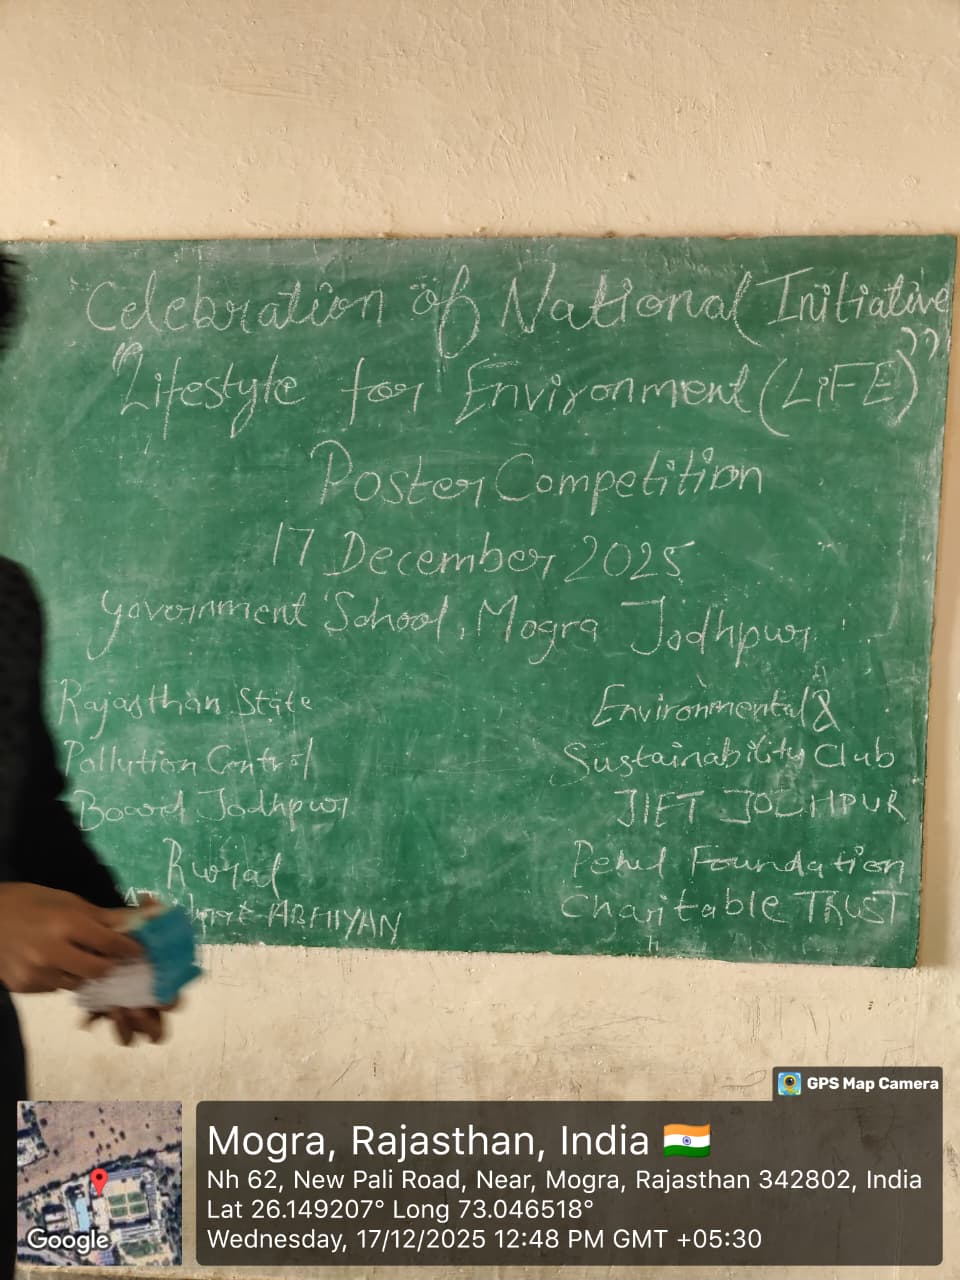 "Celebration of National Initiative
"Lifestyle for Environment (LiFE)"
Poster Competition
17 December 2025
Government School, Mogra Jodhpur
Rajasthan State
Pollution Control
Board Jodhpur
Rural
ABHIYAN
Environmental &
Sustainability Club
JIET JODHPUR
Foundation
Charitable TRUST
GPS Map Camera
Mogra, Rajasthan, India
Nh 62, New Pali Road, Near, Mogra, Rajasthan 342802, India
Lat 26.149207° Long 73.046518°
Wednesday, 17/12/2025 12:48 PM GMT +05:30
Google